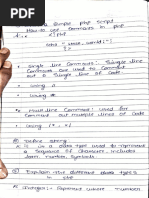 a Simple php Script
How to use Comments in php
<?php
echo "Hello, world!";
?>
• Single line Comments: Single line
Comments are used to Comment
out a Single line of Code.
• Using //
• Using #
• Multi-line Comment: Used for
Comment out multiple lines of code
• Using /* */
Define String
is a data type used to represent
Sequence of characters, includes
Symbols
Explain the different data types
Integer: Represent whole number